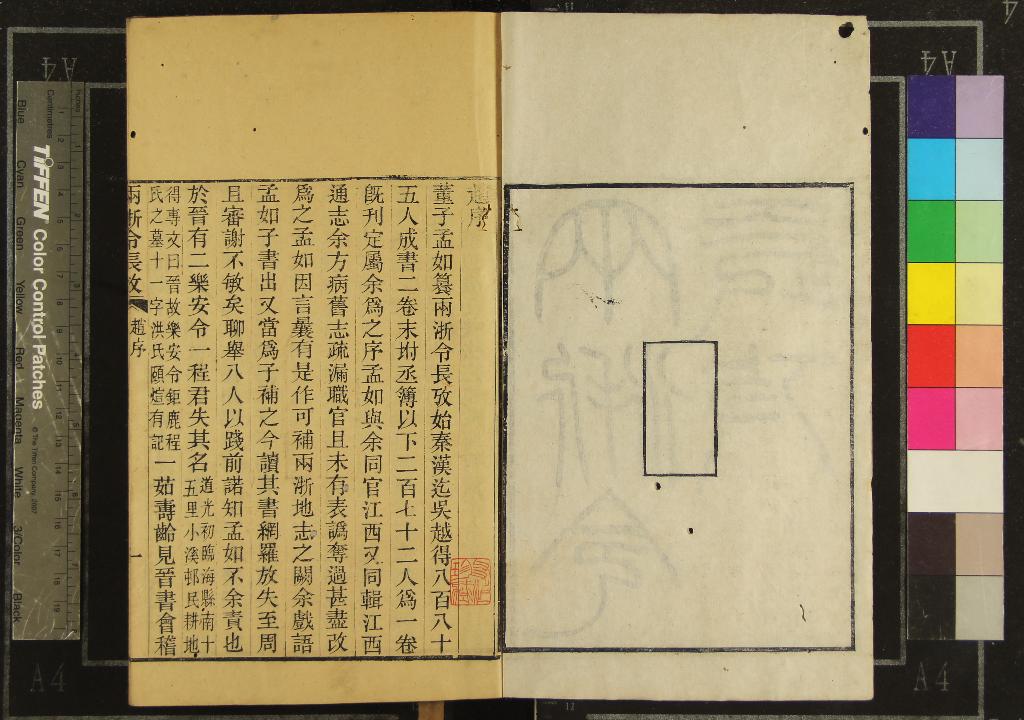 趙序
董子孟如篹兩浙令長攷始秦漢迄吳越得八百八十
五人成書二卷末坿丞簿以下二百七十二人爲一卷
旣刋定屬余爲之序孟如與余同官江西又同輯江西
通志余方病舊志疏漏職官且未有表譌奪過甚盡改
爲之孟如因言曩有是作可補兩浙地志之闕余戲語
孟如子書出又當爲子補之今讀其書網羅放失至周
且審謝不敏矣聊舉八人以踐前諾知孟如不余責也
於晉有二樂安令一程君失其名道光初臨海縣南十
五里小溪邨民耕地
得專文曰晉故樂安令鉅鹿程
氏之墓十一字洪氏頤煊有記一茹壽齡見晉書會稽
兩浙令長攷
趙序
一
TIFFEN Color Control Patches
© The Tiffen Company, 2007
Centimetres
Inches
Blue
Cyan
Green
Yellow
Red
Magenta
White
3/Color
Black
A4
A4
A4
A4